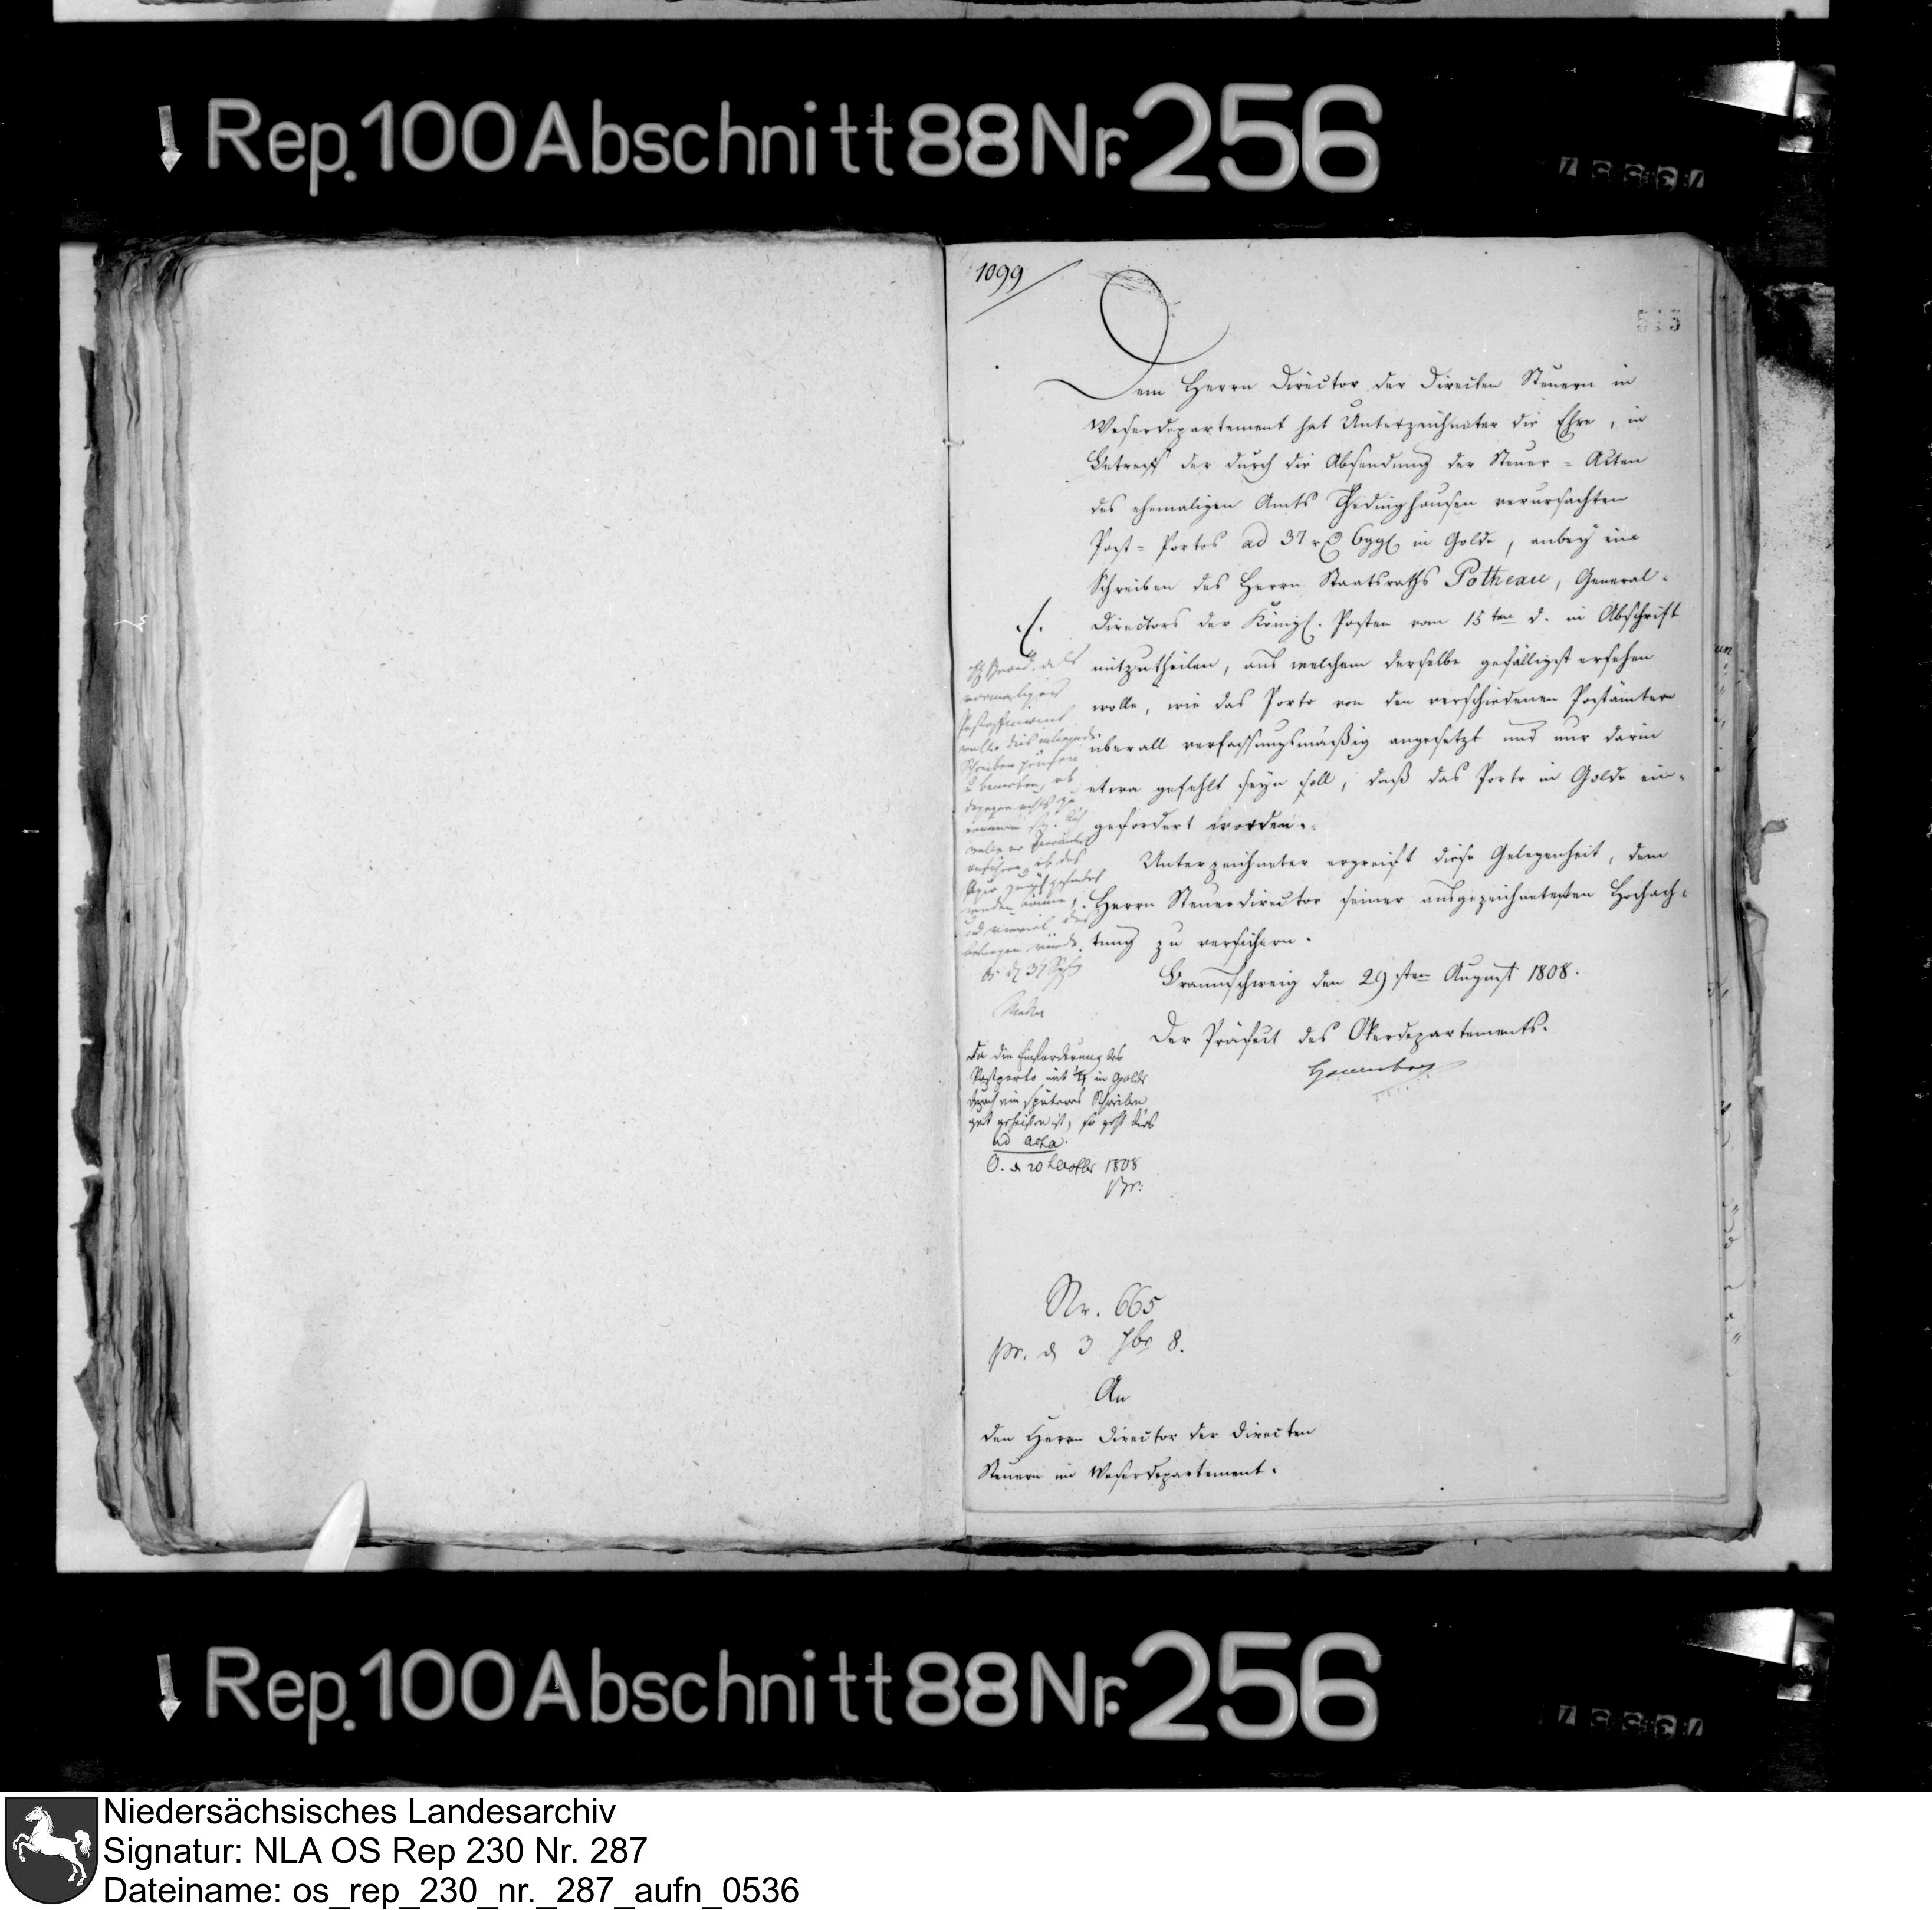 Rep. 100 Abschnitt 88 Nr. 256
1099
515
Dem Herrn Director der Directen Steuern im
Weserdepartement hat Unterzeichneter die Ehre, in
Betreff der durch die Absendung der Steuer = Acten
des ehemaligen Amts Thedinghausen verursachten
Post = Portos ad 37 rℓ 6 ggl in Golde, anbey ein
Schreiben des Herrn Staatsraths Pothcau, General =
Directors der Königl. Posten vom 15ten d. in Abschrift
mitzutheilen, aus welchem derselbe gefälligst ersehen
wolle, wie das Porto von den verschiedenen Postämtern
überall verfassungsmäßig angesetzt und nur darin
etwa gefehlt seyn soll, daß das Porto in Golde ein =
gefordert worden.
Unterzeichneter ergreift diese Gelegenheit, dem
Herrn Steuerdirector seiner ausgezeichnetesten Hochach =
tung zu versichern.
Braunschweig den 29sten August 1808.
Der Präfect des Okerdepartements.
Henneberg
vormaliger
wolle dies anliegende
Schreiben prüfen
u bemerken, ob
dagegen nichts zu
erinnern sey. Auch
werden könne,
und wieviel das
betragen würde.
Da die Einforderung des
Postporto mit in Golde
durch ein späteres Schreiben
gut geheißen ist, so geht dies
ad acta.
O. d 20 1808
Nr. 665
pr. d 3 7br 8.
An
den Herrn Director der Directen
Steuern im Weserdepartement.
Rep. 100 Abschnitt 88 Nr. 256
Niedersächsisches Landesarchiv
Signatur: NLA OS Rep 230 Nr. 287
Dateiname: os_rep_230_nr._287_aufn_0536